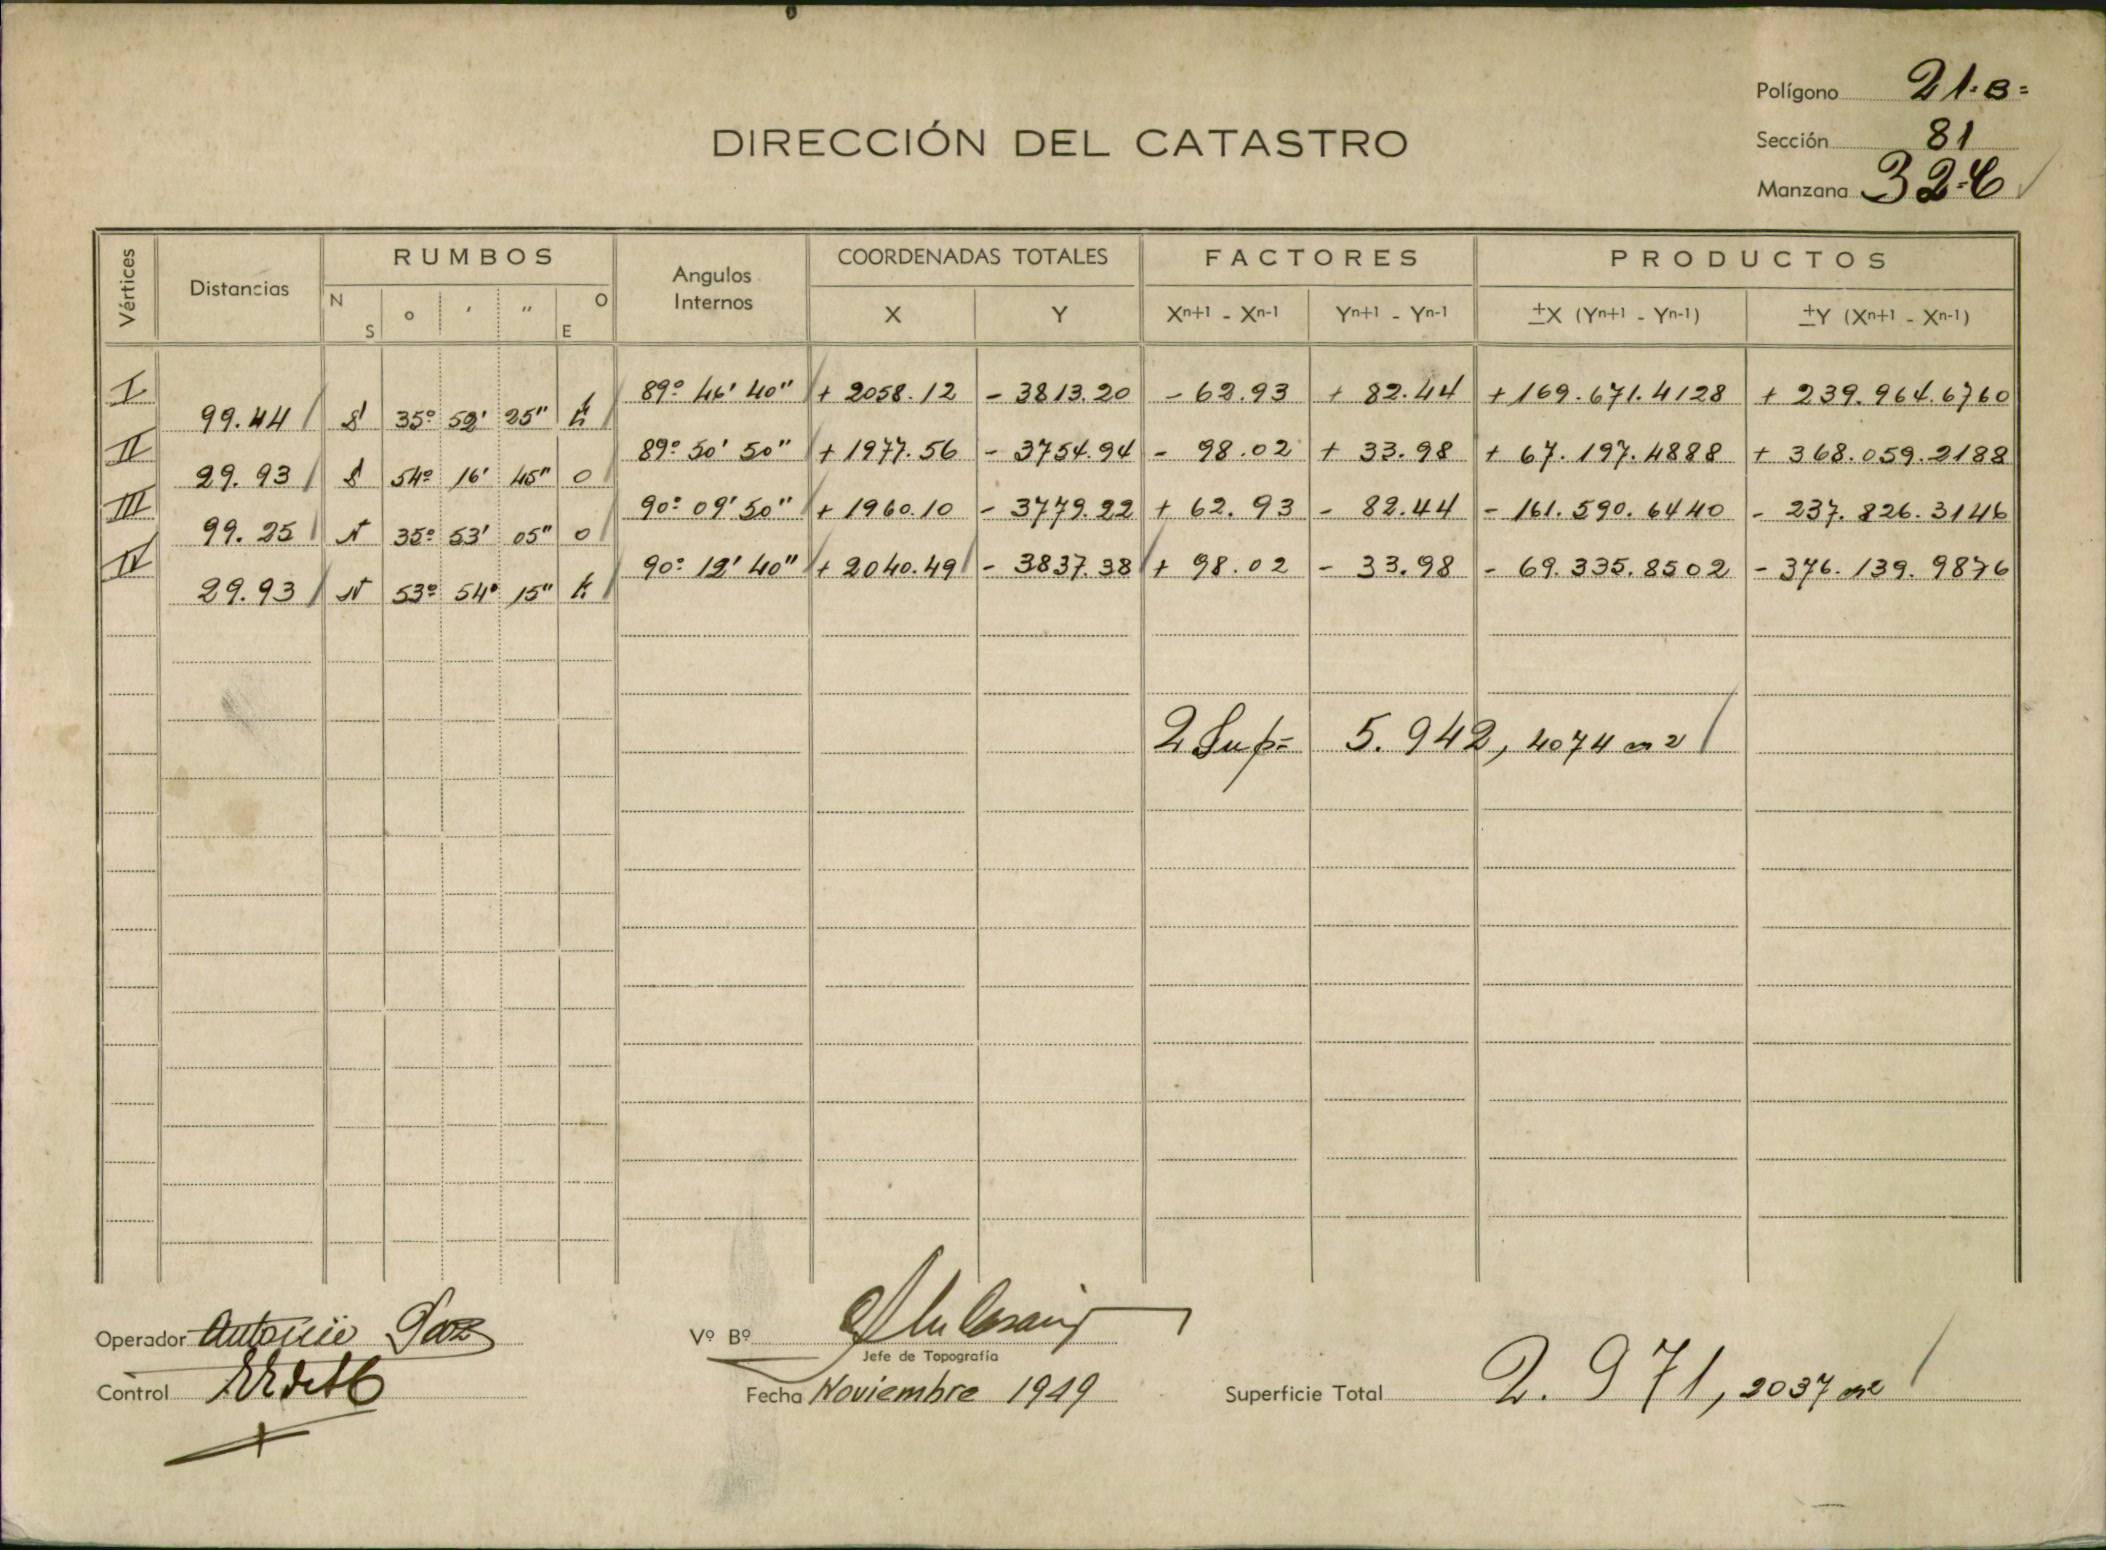 Polígono 21-B=
DIRECCIÓN DEL CATASTRO
Sección 81
Manzana 32-C
Vértices Distancias RUMBOS N S ° ′ ″ O E Angulos Internos COORDENADAS TOTALES X Y FACTORES Xn+1 - Xn-1 Yn+1 - Yn-1 PRODUCTOS ±X (Yn+1 - Yn-1) ±Y (Xn+1 - Xn-1)
I 89º 46' 40" + 2058.12 - 3813.20 - 62.93 + 82.44 + 169.671.4128 + 239.964.6760
99.44 S 35º 52' 25" E
II 89º 50' 50" + 1977.56 - 3754.94 - 98.02 + 33.98 + 67.197.4888 + 368.059.2188
29.93 S 54º 16' 45" O
III 90º 09' 50" + 1960.10 - 3779.22 + 62.93 - 82.44 - 161.590.6440 - 237.826.3146
99.25 N 35º 53' 05" O
IV 90º 12' 40" + 2040.49 - 3837.38 + 98.02 - 33.98 - 69.335.8502 - 376.139.9876
29.93 N 53º 54' 15" E
2 Sup= 5.942,4074 m2
Operador Antonio Paz
Vº Bº
Jefe de Topografía
Control
Fecha Noviembre 1949
Superficie Total 2.971,2037 m2